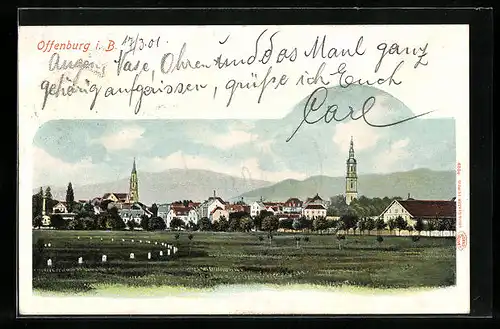 Offenburg i. B.
17/3.01.
Augen, Nase, Ohren und das Maul ganz
gehörig aufgerissen, grüße ich Euch
Carl